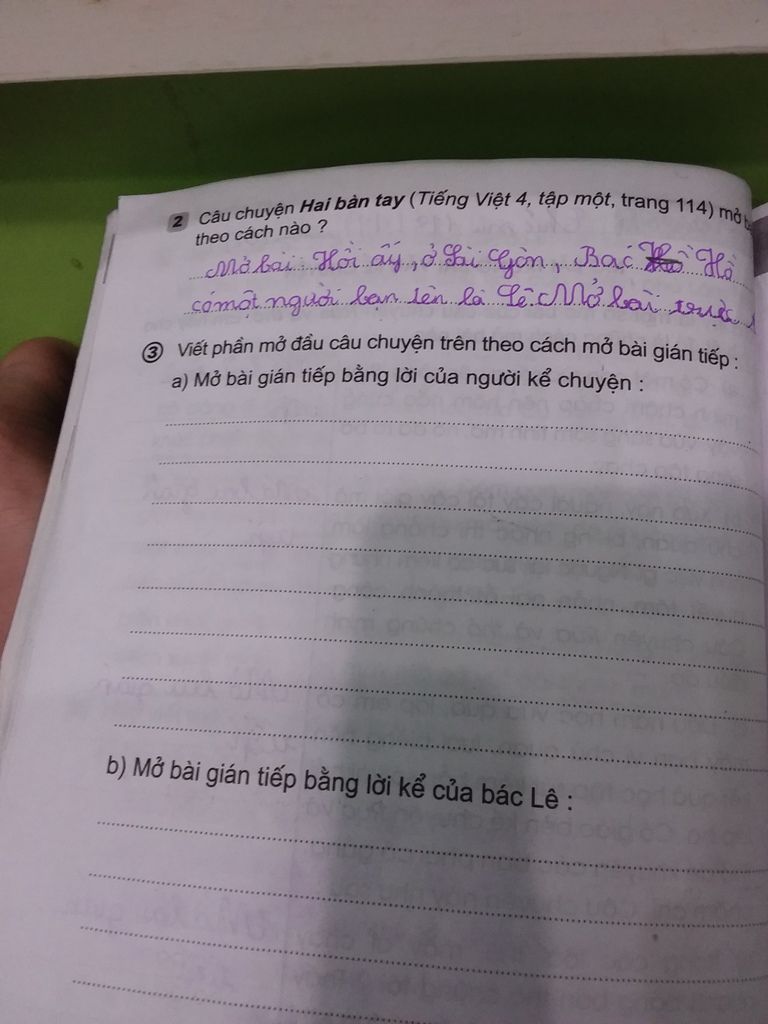 2 Câu chuyện Hai bàn tay (Tiếng Việt 4, tập một, trang 114) mở
theo cách nào ?
Mở bài Hồi ấy, ở Sài Gòn, Bác Hồ
có một người bạn tên là Lê. Mở bài trực
3 Viết phần mở đầu câu chuyện trên theo cách mở bài gián tiếp :
a) Mở bài gián tiếp bằng lời của người kể chuyện :
b) Mở bài gián tiếp bằng lời kể của bác Lê :